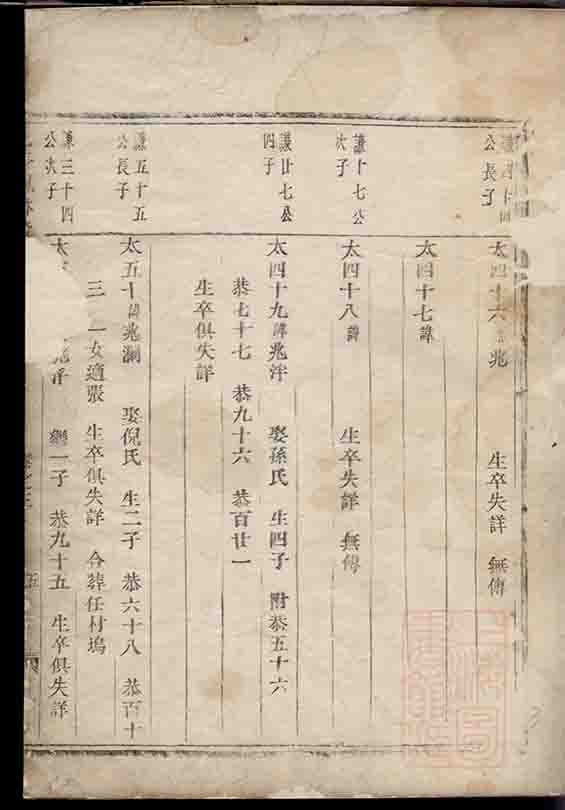 公長子
太四十六諱兆 生卒失詳 無傳
太四十七諱
謙十七公
次子
太四十八諱 生卒失詳 無傳
謙廿七公
四子
太四十九諱兆泮 娶孫氏 生四子 附恭五十六
恭七十七 恭九十六 恭百廿一
生卒俱失詳
謙五十五
公長子
太五十諱兆澗 娶倪氏 生二子 恭六十八 恭百十
三 一女適張 生卒俱失詳 合葬任村塢
謙三十四
公次子
太 兆浮 繼一子 恭九十五 生卒俱失詳
五